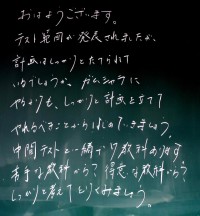 おはようございます。
テスト範囲が発表されましたが、
計画はしっかりとたてられて
いるでしょうか。ガムシャラに
やるよりも、しっかりと計画を立てて
やれるべきことからはじめていきましょう。
中間テストと一緒で9教科あります
苦手な教科から？得意な教科から？
しっかりと考えてとりくみましょう。